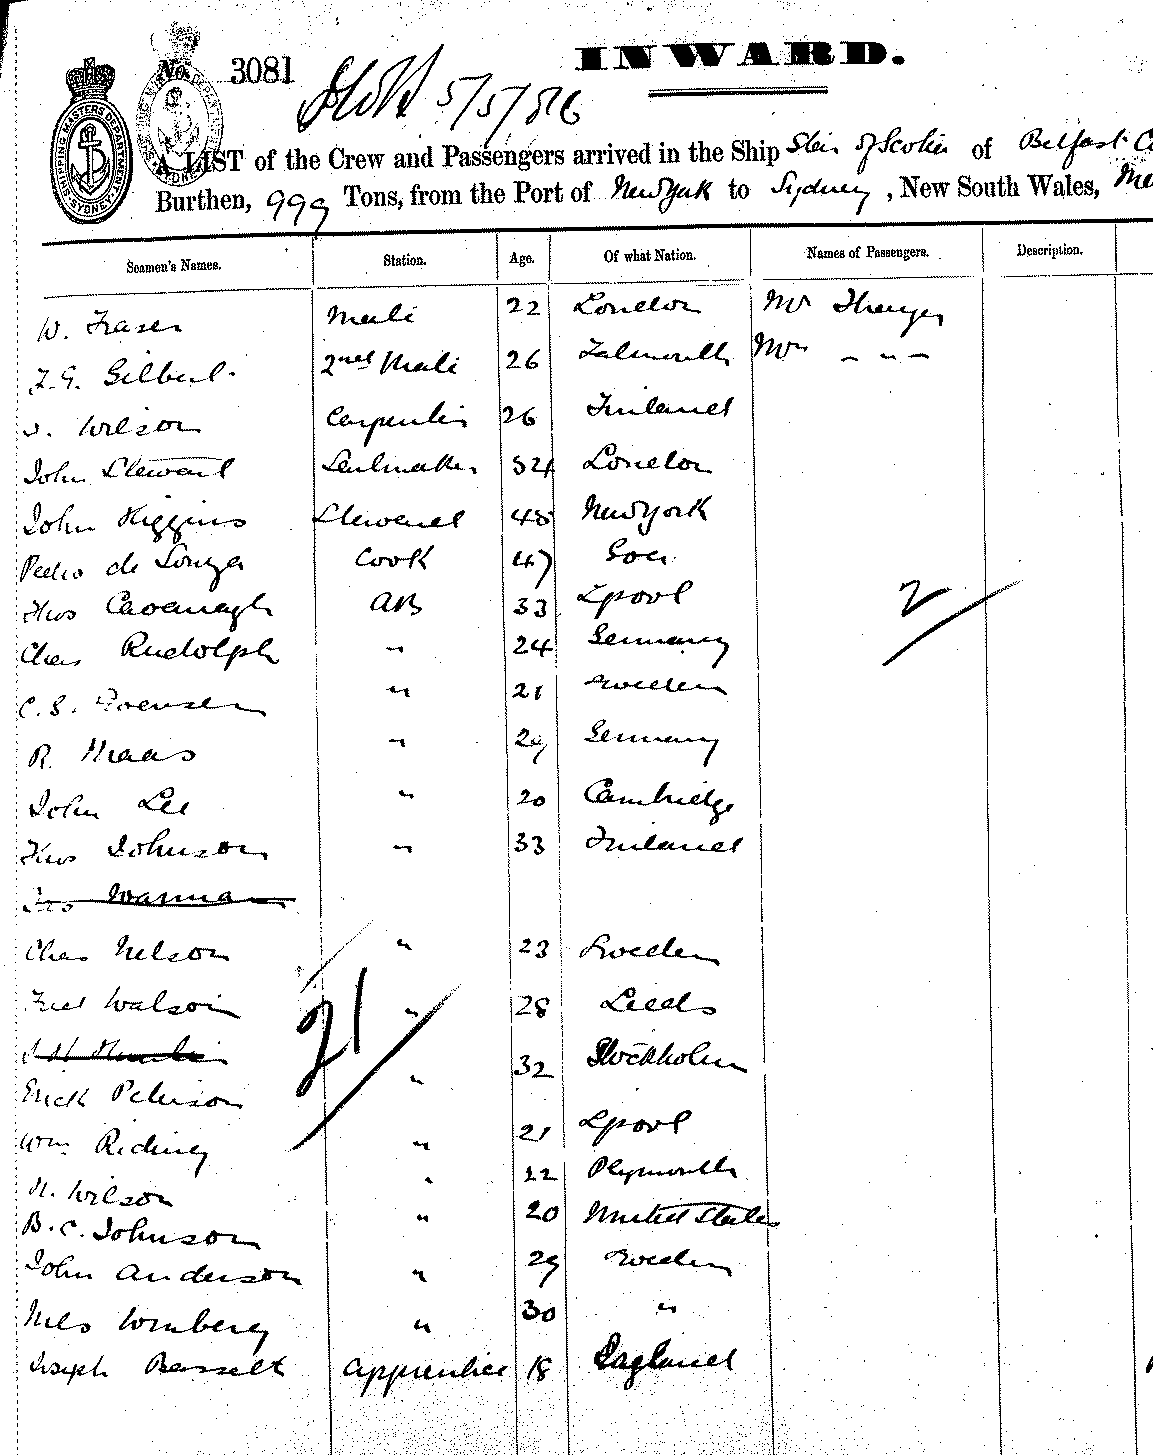 No. 3081
INWARD.
5/5/86
A LIST of the Crew and Passengers arrived in the Ship Star of Scotia of Belfast
Burthen, 999 Tons, from the Port of New York to Sydney, New South Wales,
SHIPPING MASTERS DEPARTMENT SYDNEY
Seamen's Names. Station. Age. Of what Nation. Names of Passengers. Description.
W. Fraser Mate 22 London Mr Thayer
F. G. Gilbert 2nd Mate 26 Falmouth Mrs " "
J. Wilson Carpenter 26 Finland
John Stewart Sailmaker 32 London
John Higgins Steward 48 New York
Pedro de Souza Cook 47 Goa
Thos Cavanagh AB 33 Lpool
Chas Rudolph " 24 Germany
C. S. " 21 Sweden
R. Haas " 29 Germany
John Lee " 20 Cambridge
Thos Johnson " 33 Finland
Warman
Chas Nelson " 23 Sweden
Fred Watson " 28 Leeds
Erick Peterson " 32 Stockholm
Wm Ridney " 21 Lpool
H. Wilson " 22 Plymouth
B. C. Johnson " 20 United States
John Anderson " 29 Sweden
Nels Winberg " 30 "
Joseph Bassett Apprentice 18 England
2
21